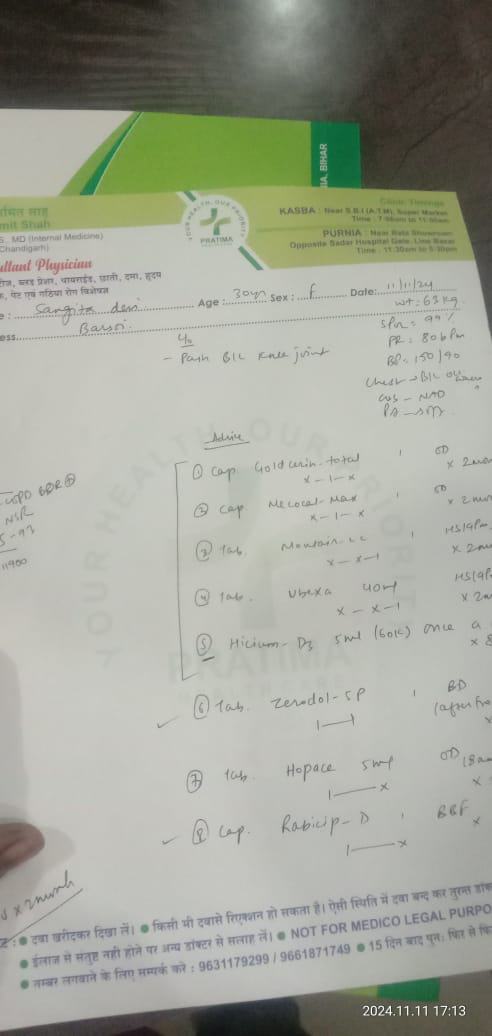 A, BIHAR
Clinic Timings
KASBA : Near S.B.I (A.T.M), Super Market
Time : 7:00am to 11:00am
PURNIA : Near Bata Showroom
Opposite Sadar Hospital Gate, Line Bazar
Time : 11:30am to 5:30pm
YOUR HEALTH, OUR PRIORITY
PRATIMA
मित साह
mit Shah
S., MD (Internal Medicine)
Chandigarh)
ultant Physician
ब्लड प्रेशर, थायराईड, छाती, दमा, हृदय
पेट एवं गठिया रोग विशेषज्ञ
Sangita devi Age : 30yr Sex : F Date: 11/11/24
ess Baisi wt: 63 kg
SPO2 = 99%
C/o PR = 80 bpm
- Pain B/L knee joint BP = 150/90
Chest → B/L
CVS - NAD
PA - soft
Advice
NSR
5-93
11900
① Cap Goldcurin-total , OD
x-1-x x 2
② Cap Mecocal-Max , OD
x-1-x x 2
③ Tab. Montair-LC , HS/9Pm
x-x-1 x 2
④ Tab. Ubexa 40mg HS/9P
x-x-1 x 2
⑤ Hicium-D3 5ml (60K) once a
x 8
⑥ Tab. Zerodol-SP , BD
1—1 (after
⑦ Tab. Hopace 5mg OD
1—x x
⑧ Cap. Rabicip-D , BBF
1—x x
x 2month
YOUR HEALTH OUR PRIORITY
PRATIMA
HEALTH CARE
● दवा खरीदकर दिखा लें। ● किसी भी दवासे रिएक्शन हो सकता है। ऐसी स्थिति में दवा बन्द कर तुरन्त डॉक्ट
● ईलाज से संतुष्ट नही होने पर अन्य डॉक्टर से सलाह लें। ● NOT FOR MEDICO LEGAL PURPO
● नम्बर लगवाने के लिए सम्पर्क करे : 9631179299 / 9661871749 ● 15 दिन बाद पुनः फिर से फि
2024.11.11 17:13